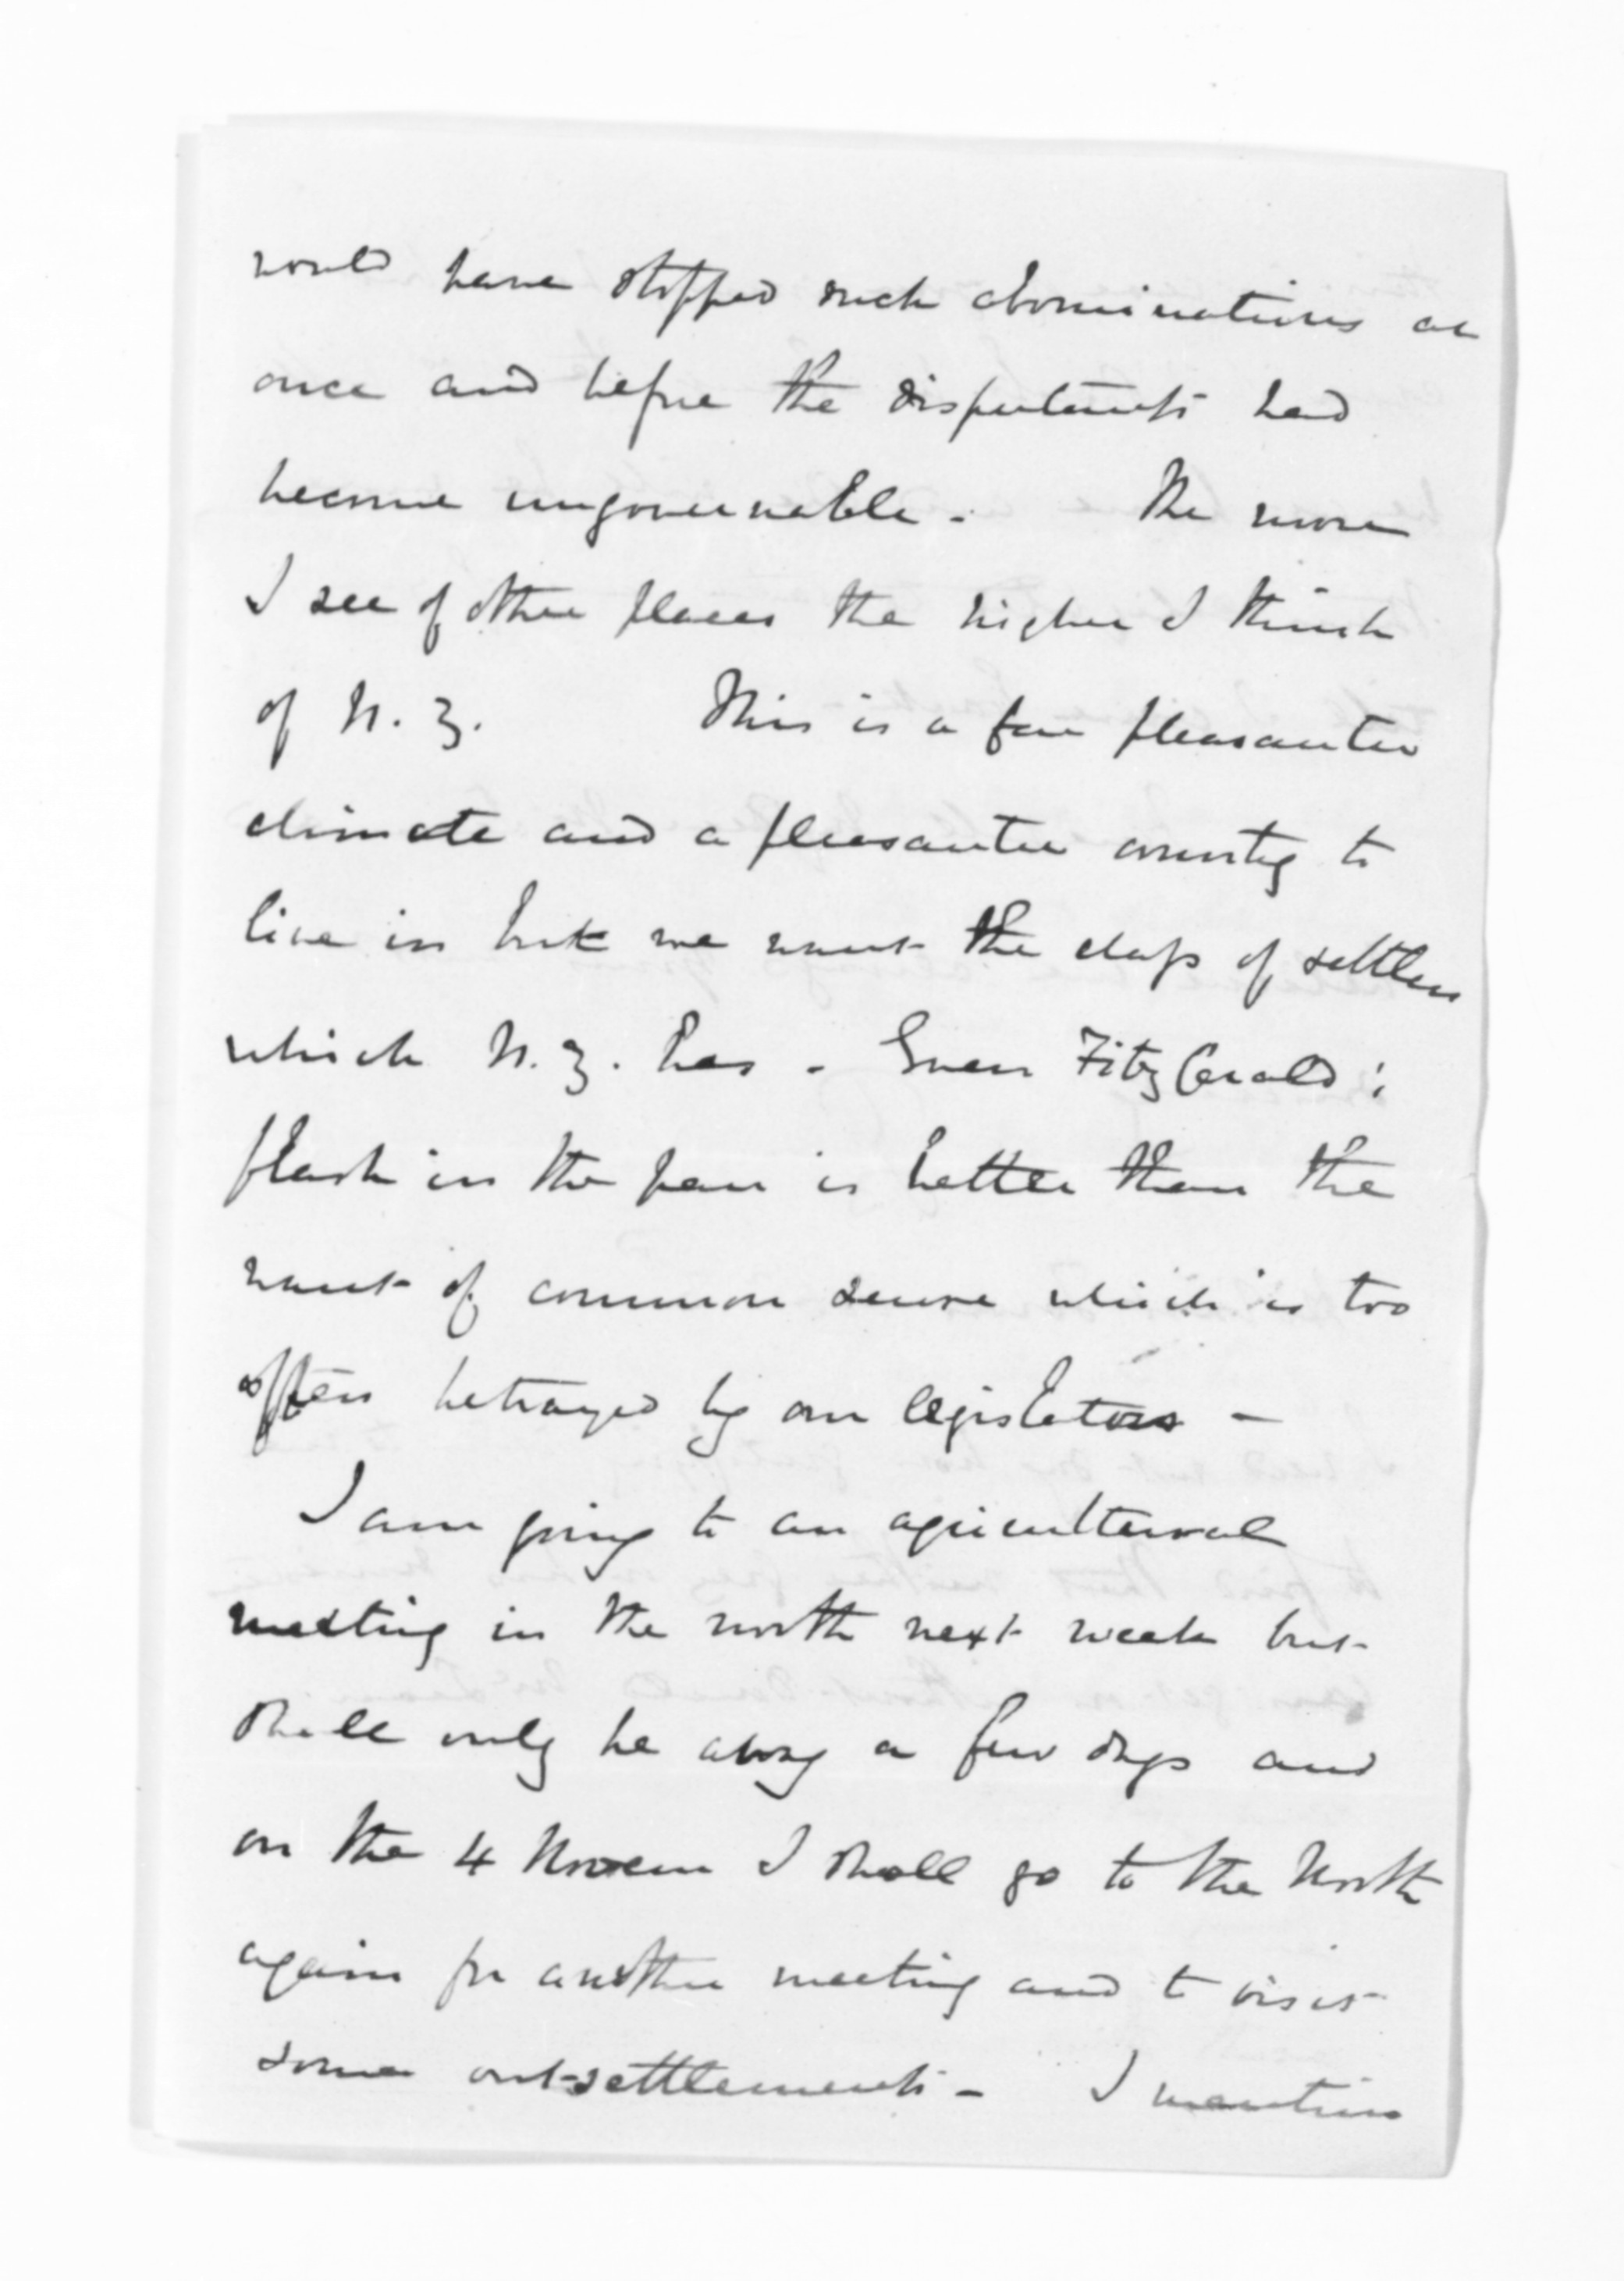 would have stopped such abominations at
once and before the disputants had
become ungovernable - The more
I see of other places the higher I think
of N. Z. This is a far pleasanter
climate and a pleasanter country to
live in but we want the class of settlers
which N. Z. has - Even FitzGerald's
flash in the pan is better than the
want of common sense which is too
often betrayed by our legislators -
I am going to an agricultural
meeting in the north next week but
shall only be away a few days and
on the 4 Novem I shall go to the North
again for another meeting and to visit
some out-settlements - I mention